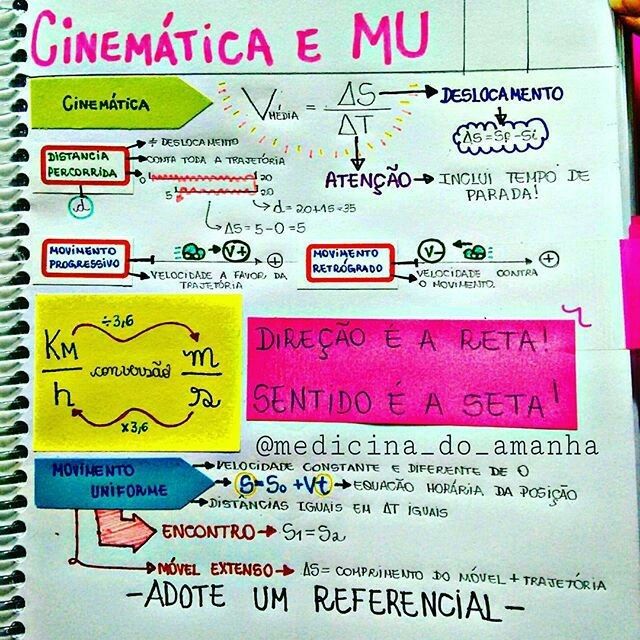 CINEMÁTICA E MU
CINEMÁTICA
VMÉDIA = ΔS/ΔT
DESLOCAMENTO
ΔS = SF - Si
ATENÇÃO → INCLUI TEMPO DE
PARADA!
DISTANCIA
PERCORRIDA
d
≠ DESLOCAMENTO
CONTA TODA A TRAJETÓRIA
0 20
5 20
d = 20+15=35
ΔS = 5-0=5
MOVIMENTO
PROGRESSIVO
V+
+
VELOCIDADE A FAVOR DA
TRAJETÓRIA
MOVIMENTO
RETRÓGRADO
V-
+
VELOCIDADE CONTRA
O MOVIMENTO.
÷3,6
KM/h conversão m/s
x3,6
DIREÇÃO É A RETA!
SENTIDO É A SETA!
@medicina_do_amanha
MOVIMENTO
UNIFORME
VELOCIDADE CONSTANTE E DIFERENTE DE 0
S=S0+Vt → EQUAÇÃO HORÁRIA DA POSIÇÃO
DISTÂNCIAS IGUAIS EM ΔT IGUAIS
ENCONTRO → S1=S2
MÓVEL EXTENSO → ΔS= COMPRIMENTO DO MÓVEL + TRAJETÓRIA
-ADOTE UM REFERENCIAL-